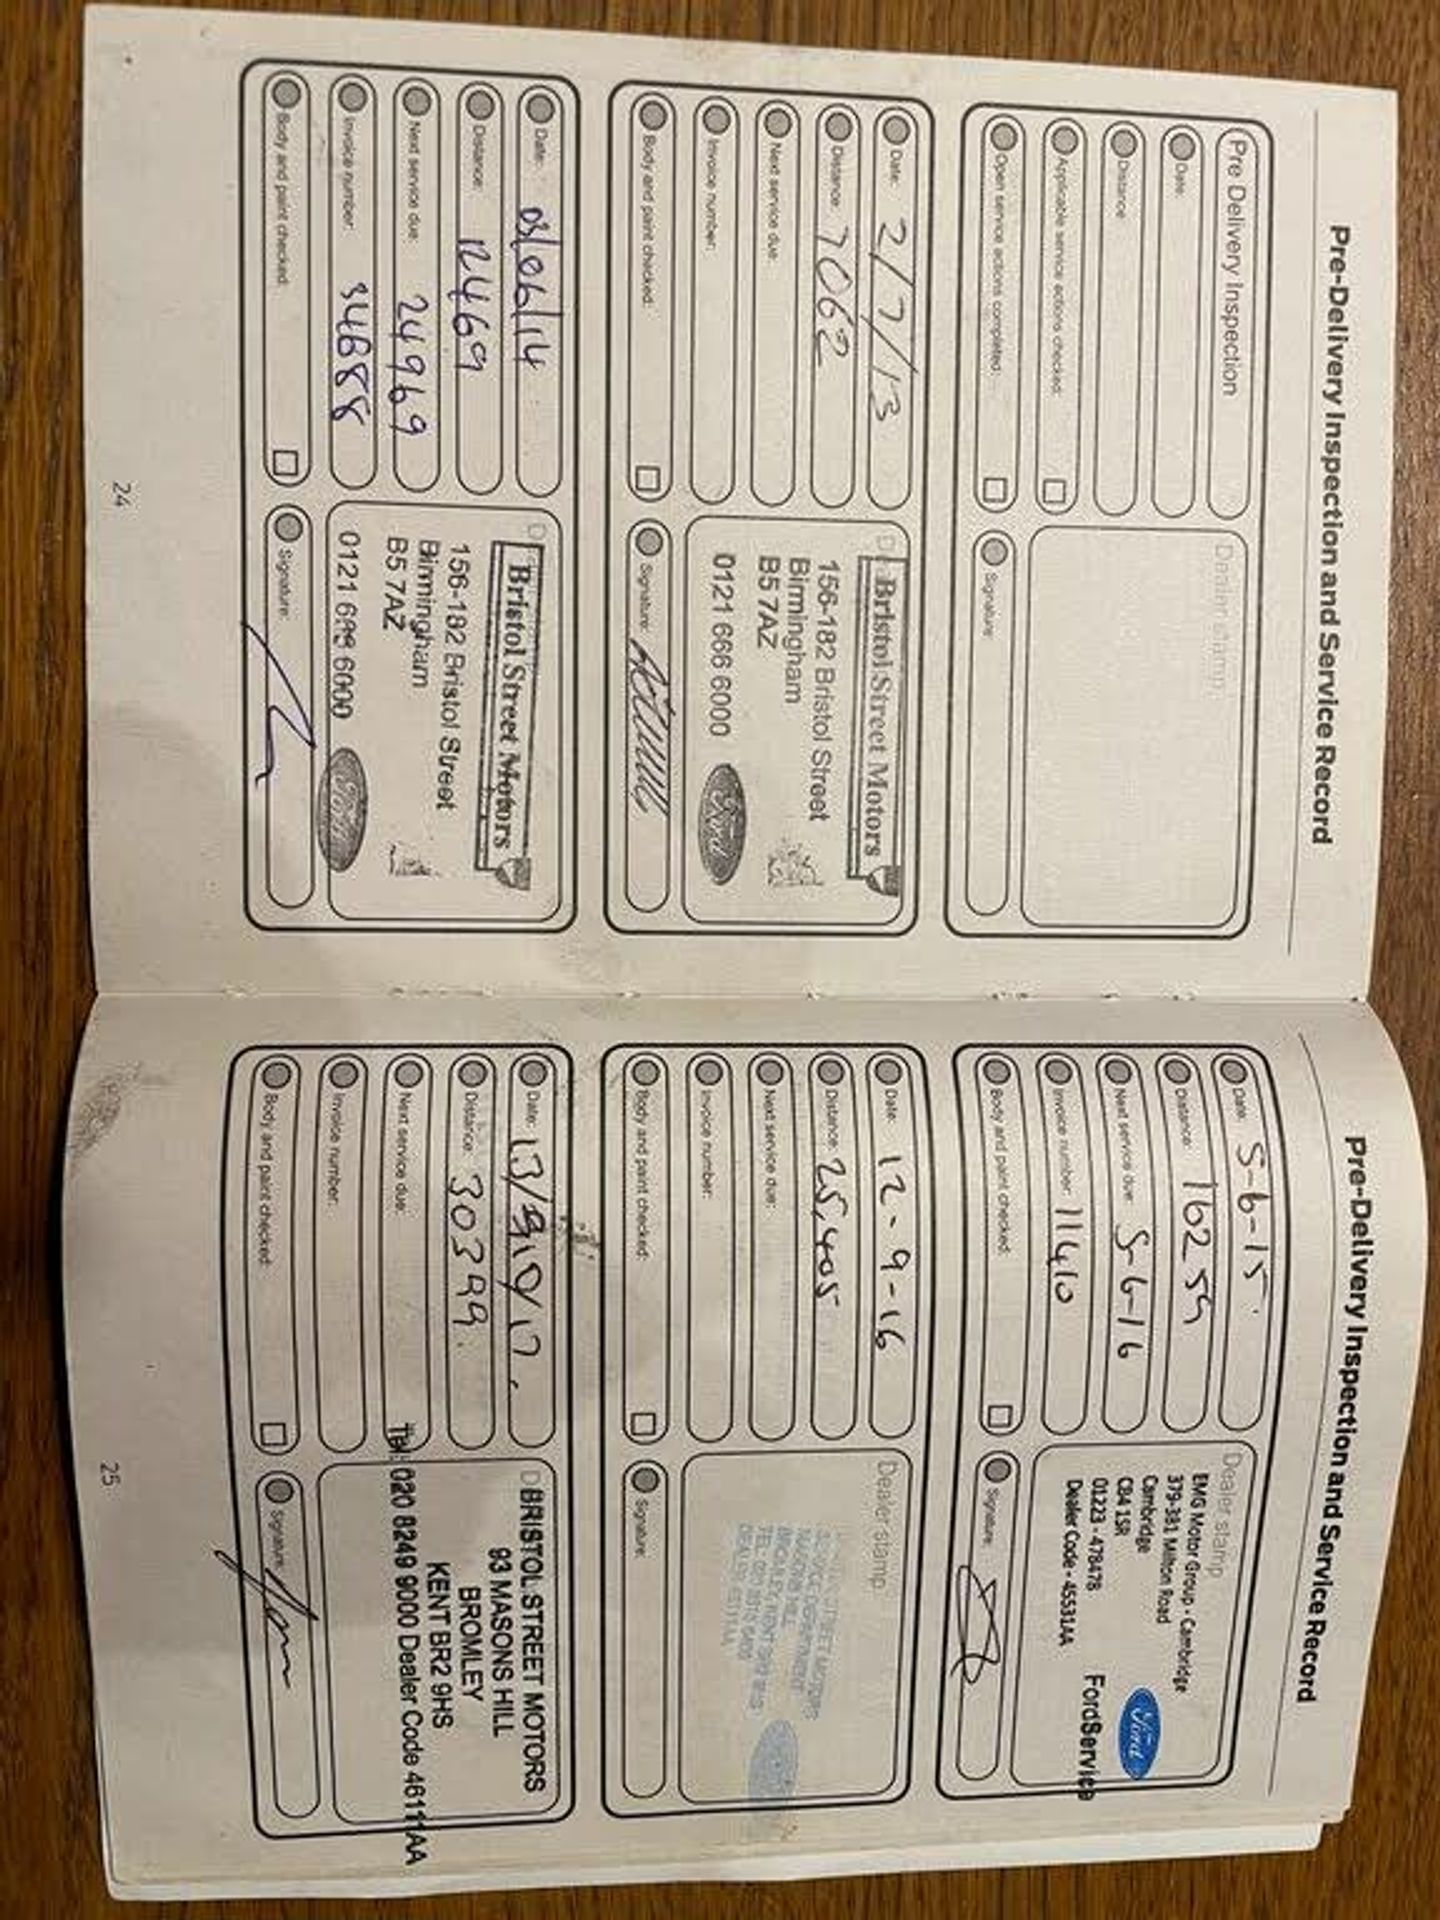 Pre-Delivery Inspection and Service Record
Pre Delivery Inspection
Date:
Distance:
Applicable service actions checked:
Open service actions completed:
Dealer stamp
Signature:
Date: 2/7/13
Distance: 7062
Next service due:
Invoice number:
Body and paint checked:
Bristol Street Motors
156-182 Bristol Street
Birmingham
B5 7AZ
0121 666 6000
Ford
Signature:
Date: 03/06/14
Distance: 12469
Next service due: 24969
Invoice number:
Body and paint checked:
Bristol Street Motors
156-182 Bristol Street
Birmingham
B5 7AZ
0121 6000
Ford
Signature:
24
Pre-Delivery Inspection and Service Record
Date: 5-6-15
Distance: 16259
Next service due: 5-6-16
Invoice number: 11410
Body and paint checked:
Dealer stamp
EMG Motor Group - Cambridge
379-381 Milton Road
Cambridge
CB4 1SR
01223 - 478478
Dealer Code - 45531AA
Ford
FordService
Signature:
Date: 12-9-16
Distance: 25,405
Next service due:
Invoice number:
Body and paint checked:
Dealer stamp
STREET MOTORS
SERVICE DEPARTMENT
MASONS HILL
BROMLEY, KENT BR2 9HS
Signature:
Date: 13/10/17.
Distance: 30399.
Next service due:
Invoice number:
Body and paint checked:
BRISTOL STREET MOTORS
93 MASONS HILL
BROMLEY
KENT BR2 9HS
Tel: 020 8249 9000 Dealer Code 46111AA
Signature:
25